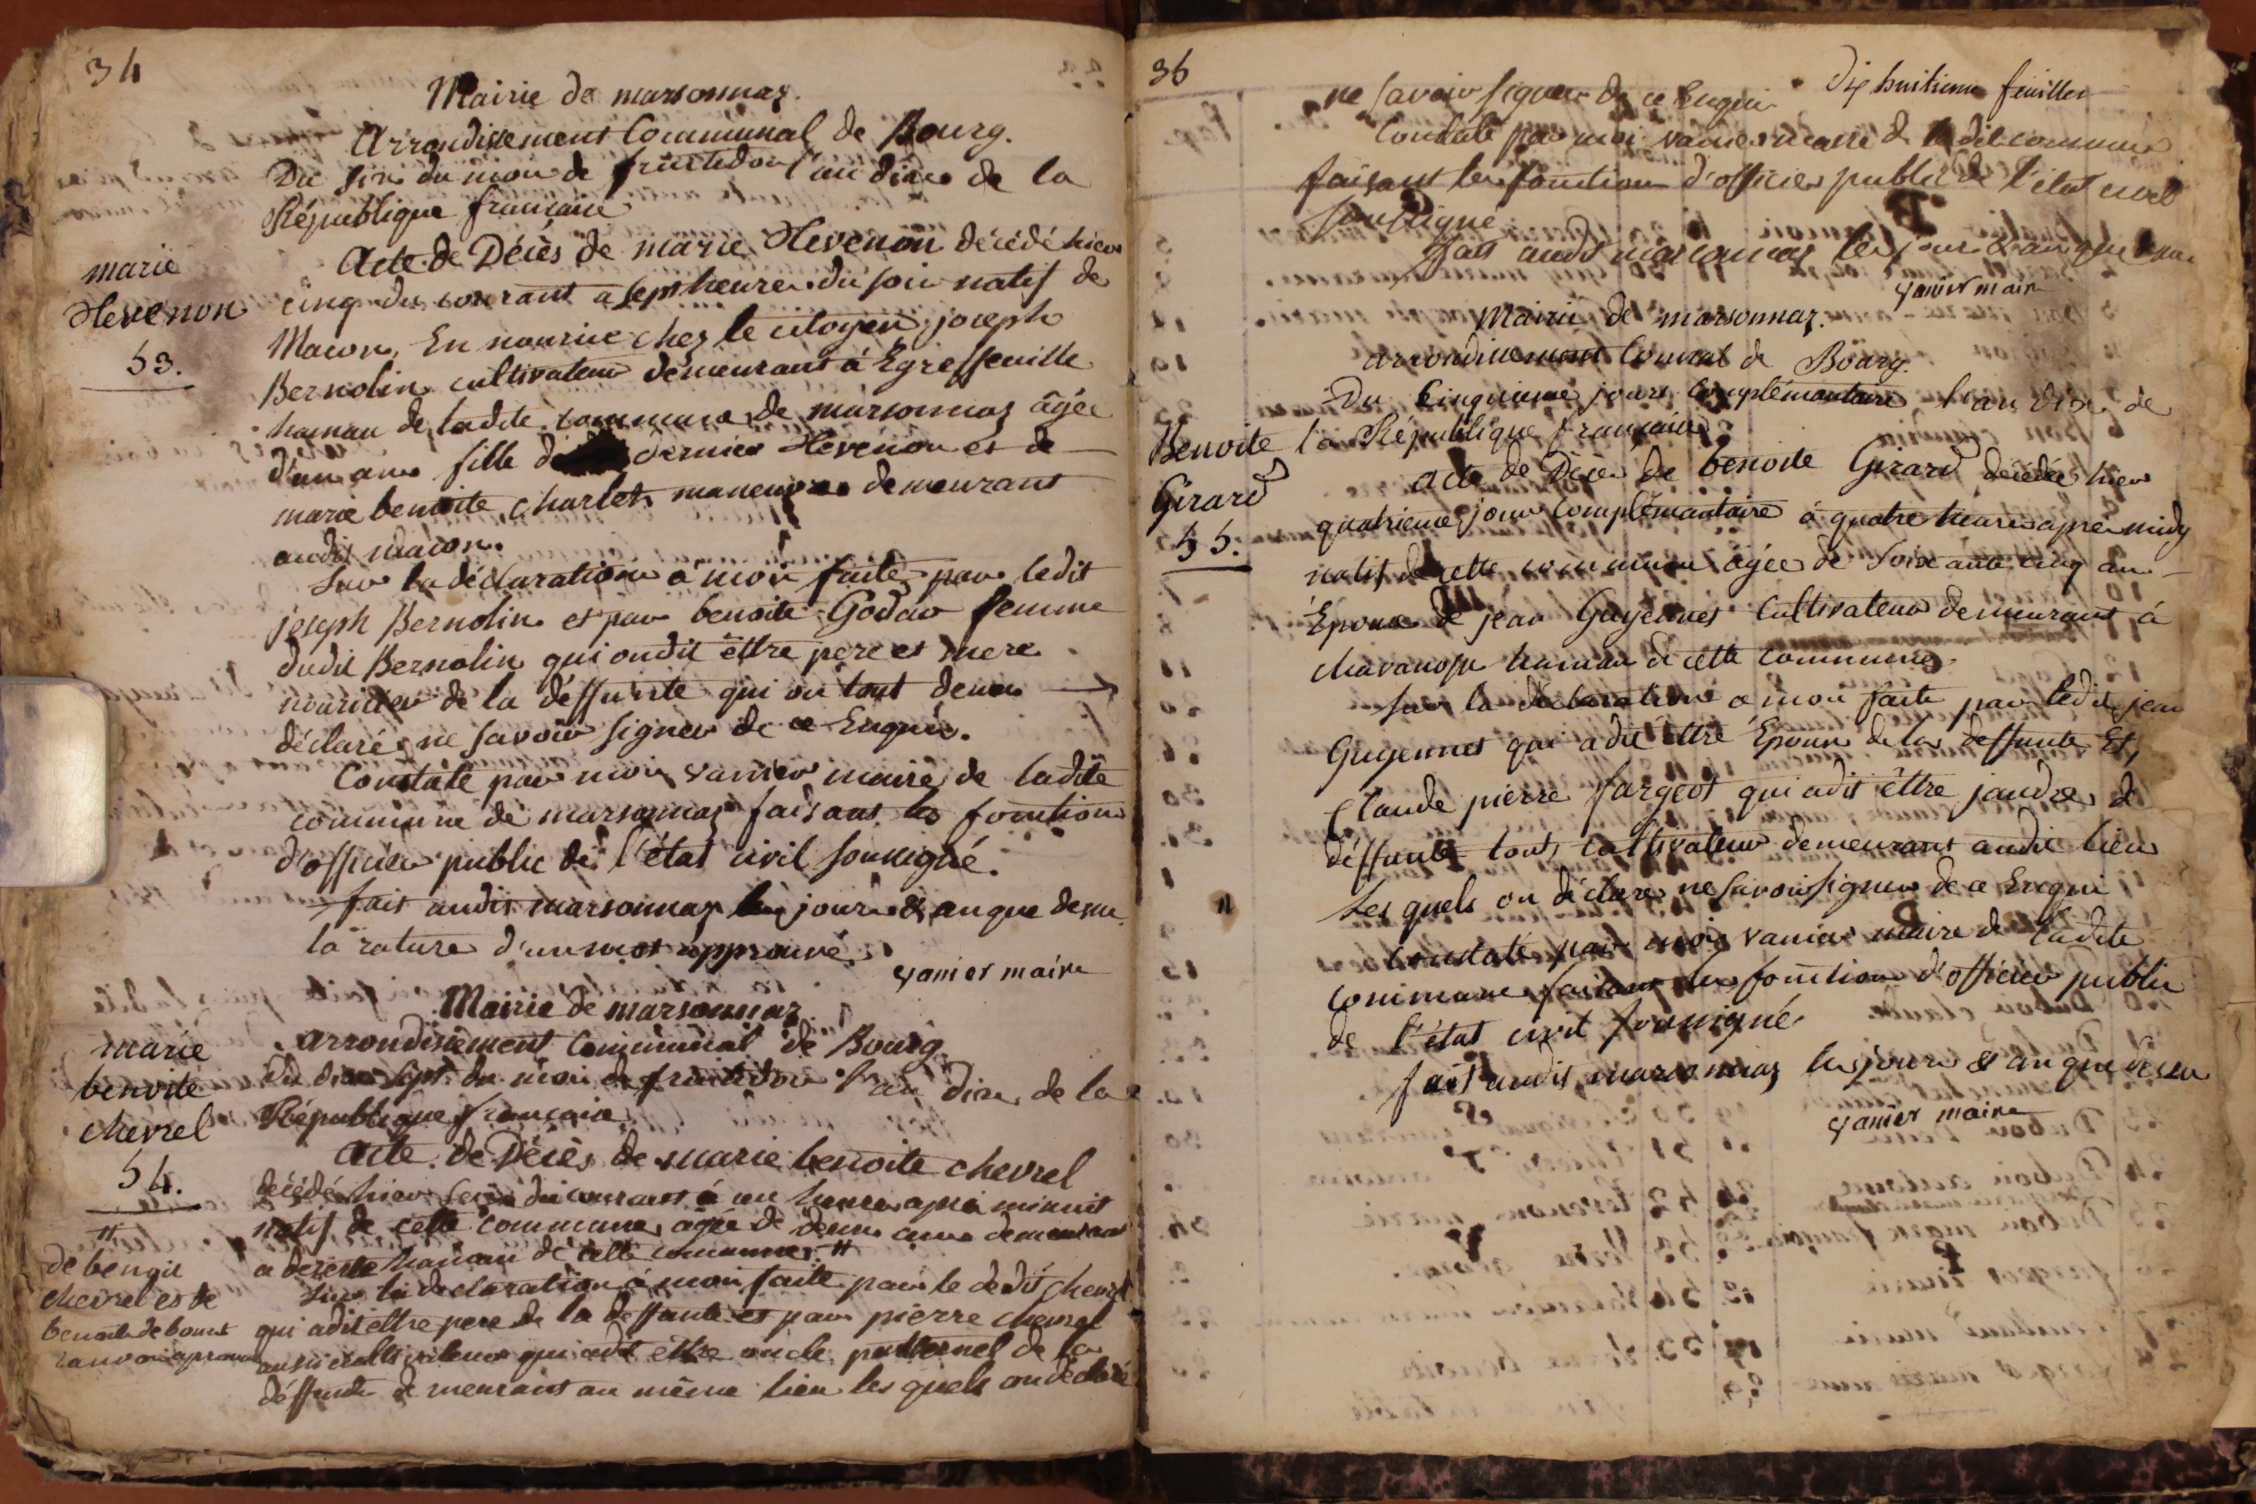 34
Mairie de marsonnaz.
Arrondissement Communal de Bourg.
Du six du mois de fructidor l'an dix de la
République francaise
marie
Hevenon
53.
Acte de Décès de marie Hevenon décédé hier
cinq du courant a sept heure du soir natif de
Macon, En nourice chez le citoyen joseph
Bernolin cultivateur demeurant à Egreffeuille
hamau de ladite commune de marsonnaz âgée
d'un ans fille dernier Hevenon et de
marie benoite charlet maneuvre demeurant
audit macon.
Sur la déclaration à moi faite par ledit
joseph Bernolin et par benoite Godar femme
dudit Bernolin qui ondit être pere et mere
nouricier de la deffunte qui on tout deux
déclaré ne savoir signer de ce Enquis.
Constaté par moi vanier maire de ladite
commune de marsonnaz faisant les fonction
d'officier public de l'état civil soussigné.
fait audit marsonnaz les jour & an que dessu
la rature d'un mot approuvé
vanier maire
Mairie de marsonnaz
arrondissement Communal de Bourg
du dix sept du mois de fructidor l'an dix de la
République francaise
marie
benoite
chevrel
54.
acte de Décès de marie benoite chevrel
décédé hier seize du courant à un heure aprè minuit
natif de cette commune agée de deux ans demeurant
a hamau de cette commune #
#
de bengit
chevrel et de
benoite de bourt
ranvoi aprouvé
Sur la declaration à moi faite par le dedit chevrel
qui adit être pere de la deffunte et par pierre chevrel
aussi cultivateur qui adit être oncle patternel de la
déffunte demeurant au même lieu les quels on déclaré
36
Dix huitieme feuillet
ne savoir signer de ce Enquis
Constaté par moi vanier maire de ladite commune
faisant les fonction d'officier public de l'état civil
soussigné
fait audit marsonnaz les jour & an que dessu
vanier maire
Mairie de marsonnaz.
arrondissement Communal de Bourg.
Du Cinquieme jours Complémantaire l'an dix de
la République francaise
Benoite
Girard
55.
acte de Décès de benoite Girard décédé hier
quatrieme jour Complémantaire à quatre heure apre midy
natif de cette commune agée de soixante cinq an
Epouse de jean Guyennet Cultivateur demeurant à
hamau de cette commune
Sur la declaration a moi faite par ledit jean
Guyennet qui adit être Epoux de la deffunte Et
Claude pierre fargeot qui adit être jandre de
déffunte tout cultivateur demeurant audit lieu
Les quels on déclare ne savoir signer de ce Enquis
Constaté par moi vanier maire de ladite
commune faisant les fonction d'officier public
de l'état civil soussigné
fait audit marsonnaz les jour & an que dessu
vanier maire